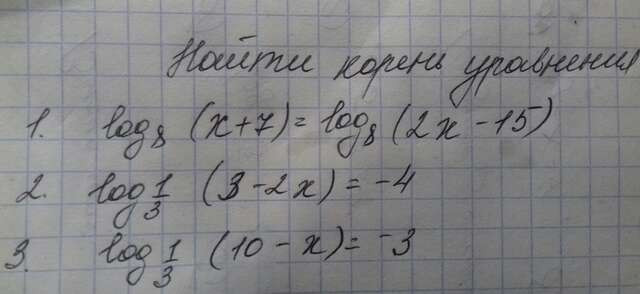 Найти корень уравнения
1. log₈ (x+7) = log₈ (2x-15)
2. log 1/3 (3-2x) = -4
3. log 1/3 (10-x) = -3